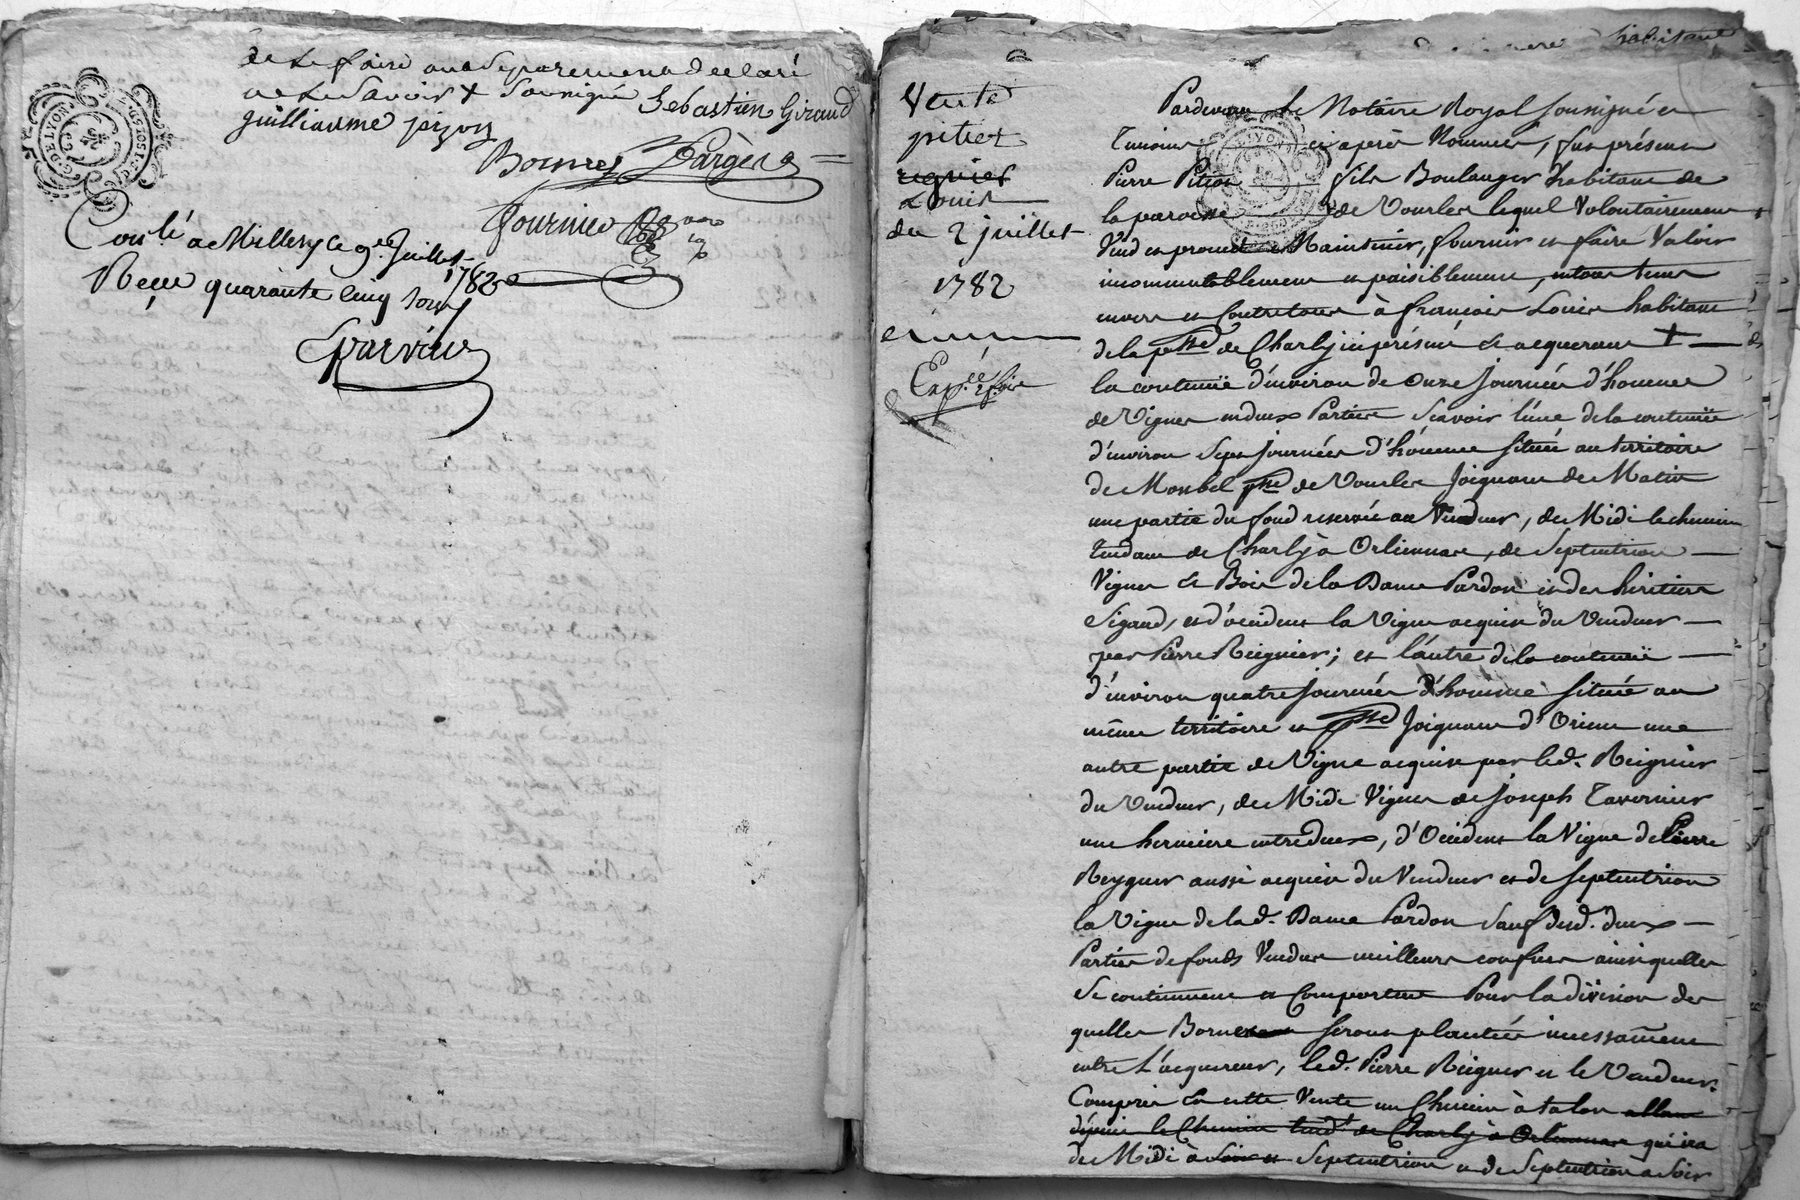 de Le faire ou a Separement declaré
ne Le Savoir & Soussigné Sebastien Giraud
guilliaume pizon
Bonnes Dargère
Fournier
Con.lé a Millery Le 9.e Juillet
1782
Reçu quarante cinq sous
GÉN. DE LYON
Vente
pitiot
regnier
Louis
du 2 juillet
1782
Exp.ée
Pardevant Le Notaire Royal soussigné et
Temoins ci après Nommés, fut présent
Pierre Pitiot fils Boulanger habitant de
la paroisse de Vourles lequel Volontairement
Vend et promet Maintenir, fournir et faire Valoir
incommutablement et paisiblement, entous tems
envers et Contretous à françois Louis habitant
de la p.sse de Charly ici présent et acquerant +
la contenüe d'environ de Onze Journées d'homme
de Vignes en deux Parties Scavoir l'une de la contenüe
d'environ Sept journées d'homme située au territoire
de Monbel p.sse de Vourles Joignant de Matin
une partie du fond reservée au Vendeur, de Midi le chemin
tendant de Charly à Orlienas, de Septentrion
Vignes et Bois de la Dame Pardon et des héritiers
Sigaud, et d'occident la Vigne acquise du Vendeur
par Pierre Reignier; et l'autre de la contenüe
d'environ quatre Journées d'homme située au
même territoire et p.sse Joignant d'Orient une
autre partie de Vigne acquise par led. Reignier
du Vendeur, de Midi Vignes de Joseph Tavernier
une hermiere entredeux, d'Occident la Vigne de Pierre
Reygner aussi acquise du Vendeur et de Septentrion
la Vigne de lad. Dame Pardon Sauf desd. deux
Parties de fonds Vendues meilleurs confins ainsi quelles
Se contiennent et Comportent Pour la division des
quelles Bornes seront plantées incessament
entre L'acquereur, led. Pierre Reigner et le Vendeur.
Compris en cette Vente un Chemin à talon allant
depuis le Chemin tend.t de Charly à Orlienas qui ira
de Midi à Septentrion et de Septentrion a Soir